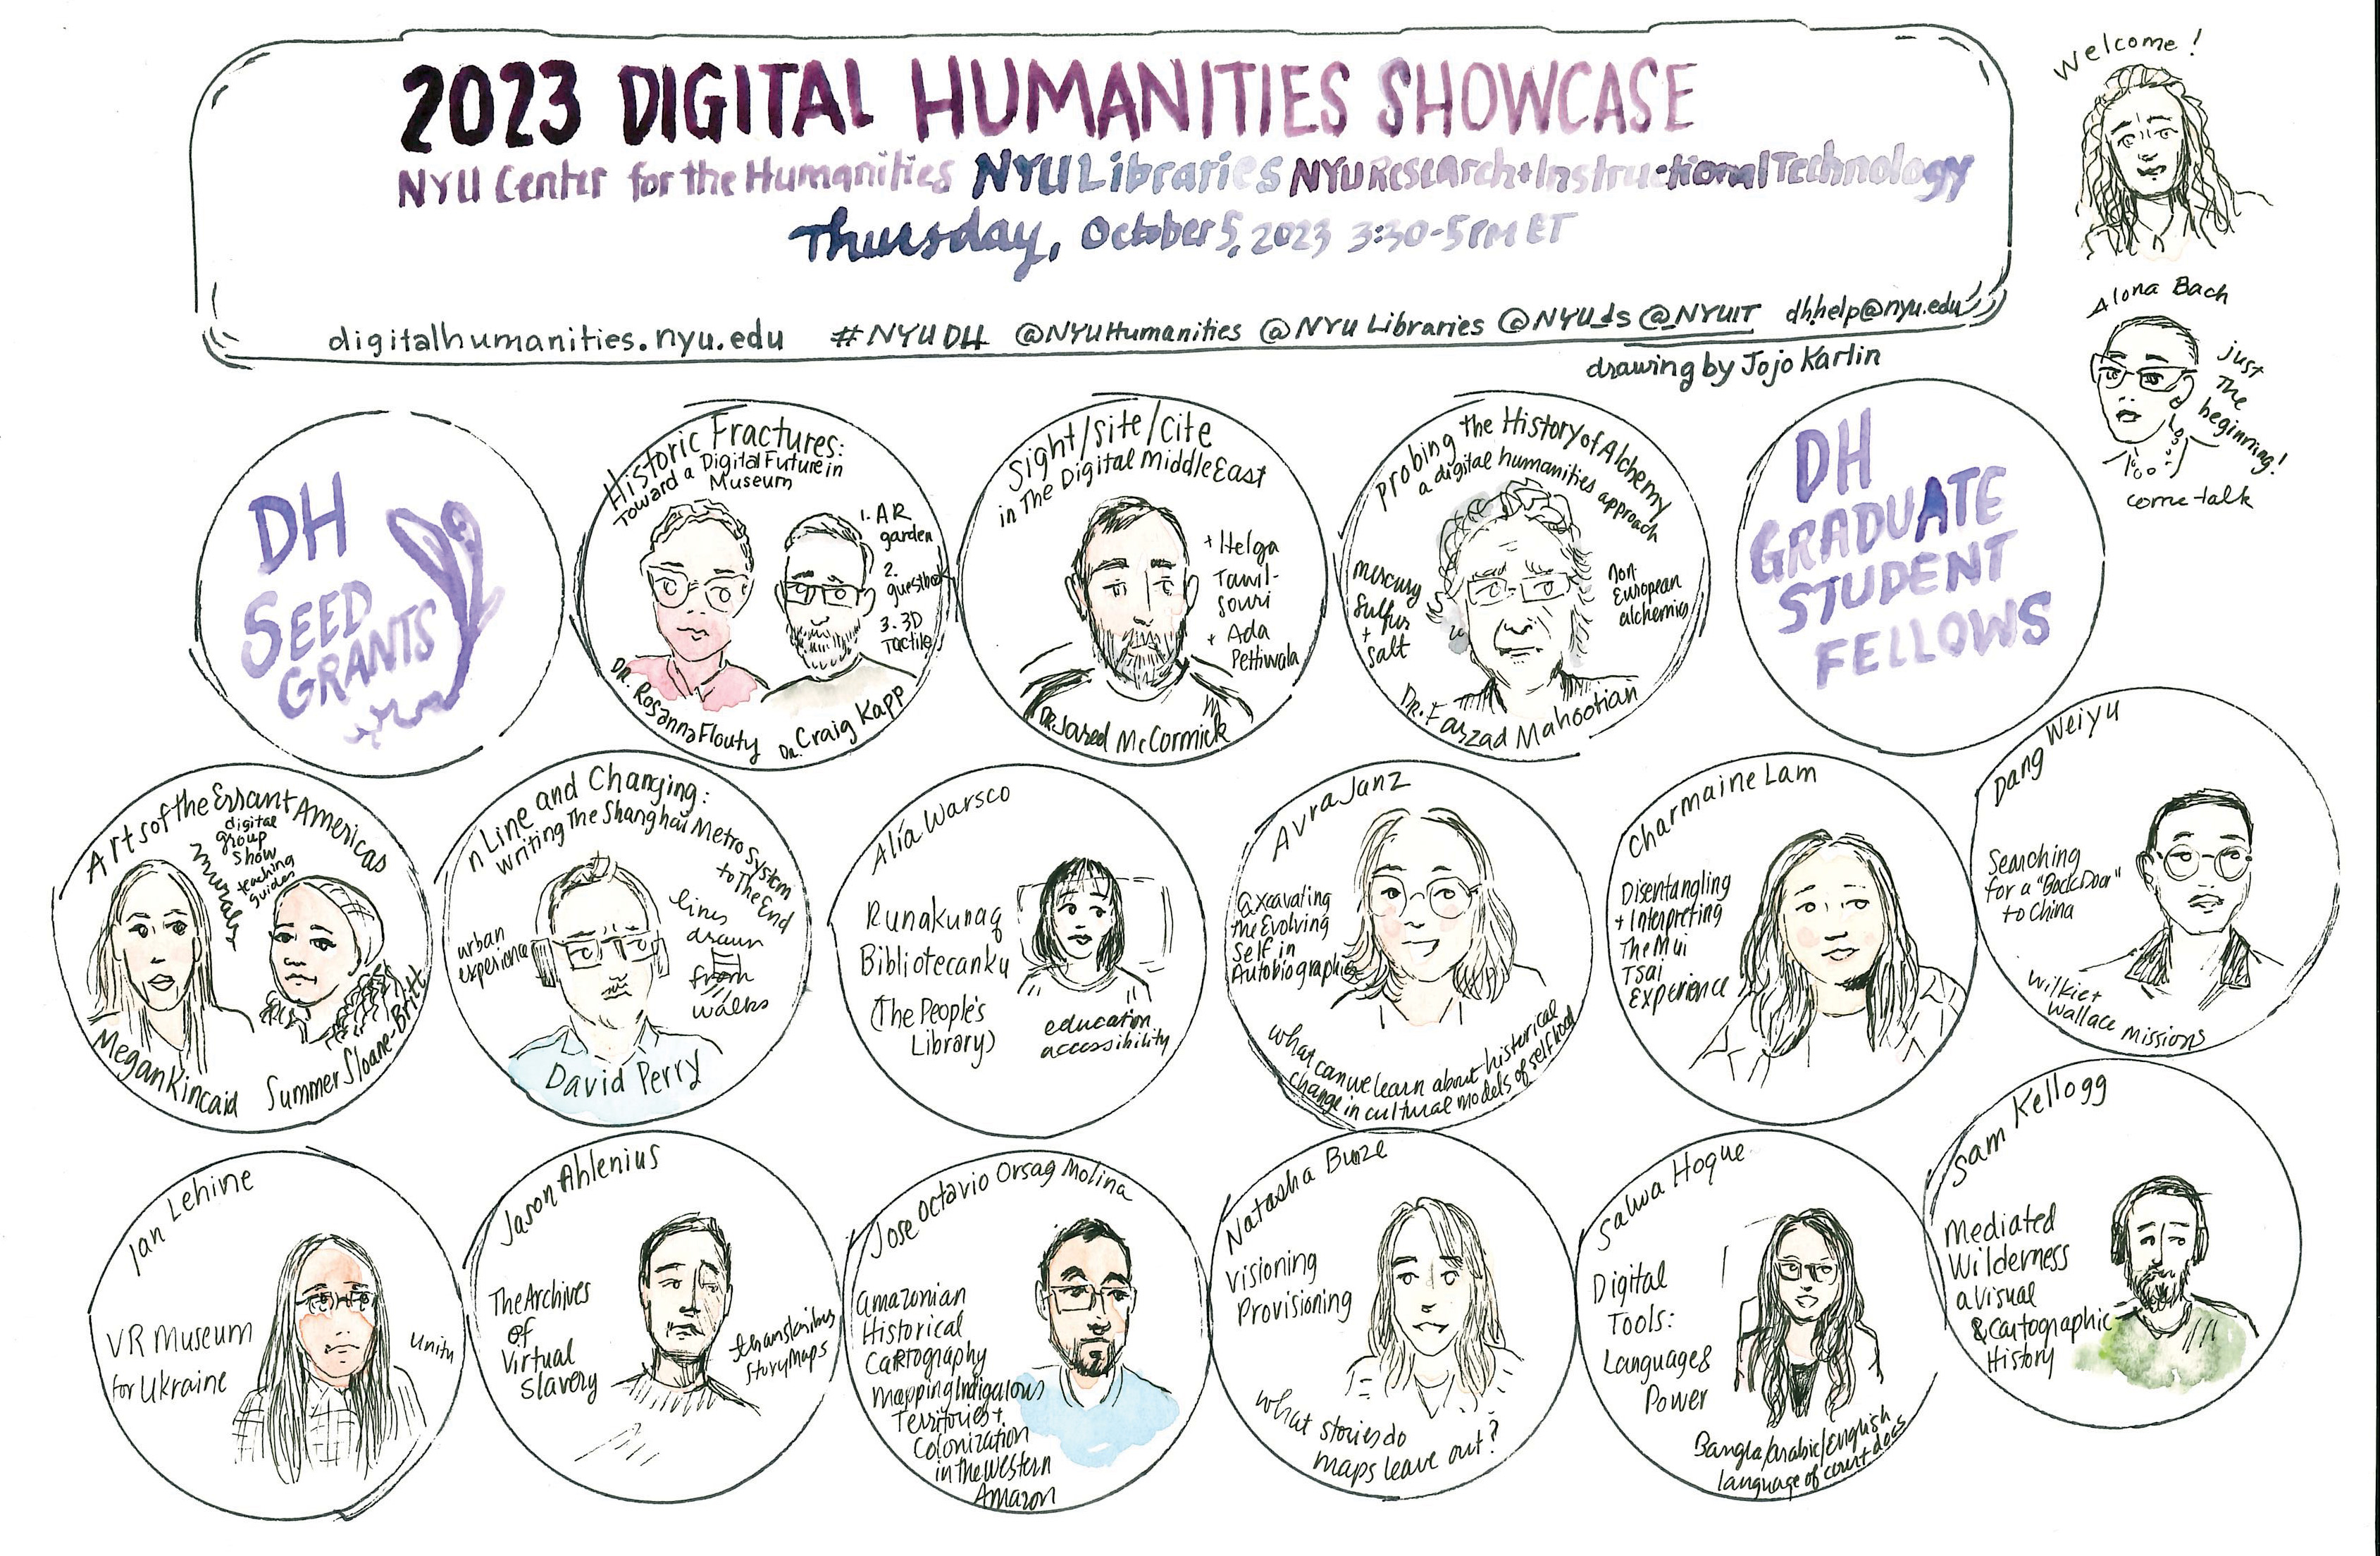 2023 DIGITAL HUMANITIES SHOWCASE
NYU Center for the Humanities NYU Libraries NYU Research + Instructional Technology
Thursday, October 5, 2023 3:30-5PM ET
digitalhumanities.nyu.edu #NYUDH @NYUHumanities @NYU Libraries @NYU_ds @NYUIT dhhelp@nyu.edu
drawing by Jojo Karlin
Welcome!
Alona Bach
just
The
beginning!
come talk
DH
SEED
GRANTS
Historic Fractures:
Toward a Digital Future in
Museum
1. AR
garden
2.
guestbook
3. 3D
Tactile
Dr. Rosanna Flouty
Dr. Craig Kapp
Sight/site/cite
in The Digital Middle East
+ Helga
Tawil-
Souri
+ Ada
Petiwala
Dr. Jared McCormick
Probing the History of Alchemy
a digital humanities approach
mercury
Sulfur
+
Salt
non-
European
alchemies
Dr. Farzad Mahootian
DH
GRADUATE
STUDENT
FELLOWS
Arts of the Errant Americas
digital
group
show
teaching
guides
murals
Megan Kincaid
Summer Sloane-Britt
n Line and Changing:
Writing The Shanghai Metro System
to The End
urban
experience
lines
drawn
from
walks
David Perry
Alía Warsco
Runakunaq
Bibliotecanku
(The People's
Library)
education
accessibility
Avra Janz
Excavating
the Evolving
Self in
Autobiographies
What can we learn about historical
change in cultural models of selfhood
Charmaine Lam
Disentangling
+ Interpreting
The Mui
Tsai
Experience
Dang Weiyu
Searching
for a "Back Door"
to China
Wilkie +
Wallace missions
Ian Lehine
VR Museum
for Ukraine
Unity
Jason Ahlenius
The Archives
of
Virtual
Slavery
StoryMaps
Jose Octavio Orsag Molina
Amazonian
Historical
Cartography
Mapping Indigenous
Territories +
Colonization
in the Western
Amazon
Natasha Bunze
Visioning
Provisioning
What stories do
maps leave out?
Salwa Hoque
Digital
Tools:
Language &
Power
Bangla/Arabic/English
language of court docs
Sam Kellogg
Mediated
Wilderness
a Visual
& Cartographic
History